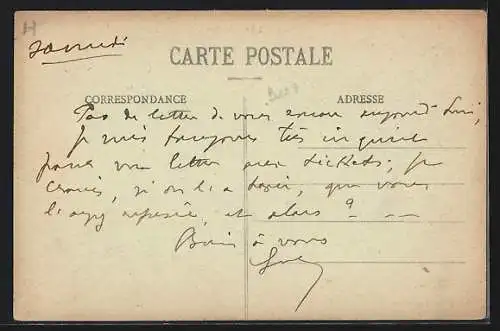 Samedi
CARTE POSTALE
CORRESPONDANCE
ADRESSE
Pas de lettre de vous encore aujourd'hui,
je suis toujours très inquiète
pour ma lettre avec tickets ; je
crains, si on l'a , que vous
l'ayez , et alors ? _ __
Bien à vous